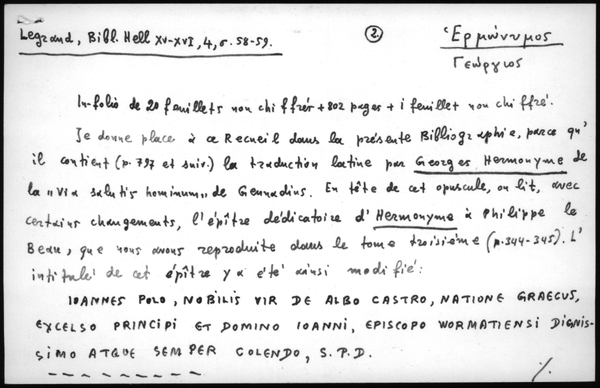 Legrand, Bibl. Hell XV-XVI, 4, σ. 58-59.
②
Ἑρμώνυμος
Γεώργιος
In-folio de 20 feuillets non chiffrés + 802 pages + 1 feuillet non chiffré.
Je donne place à ce Recueil dans la présente Bibliographie, parce qu'
il contient (p. 797 et suiv.) la traduction latine par Georges Hermonyme de
la "Via salutis hominum" de Gennadius. En tête de cet opuscule, on lit, avec
certains changements, l'épître dédicatoire d'Hermonyme à Philippe le
Beau, que nous avons reproduite dans le tome troisième (p. 344-345). L'
intitulé de cet épître y a été ainsi modifié:
IOANNES POLO, NOBILIS VIR DE ALBO CASTRO, NATIONE GRAECUS,
EXCELSO PRINCIPI ET DOMINO IOANNI, EPISCOPO WORMATIENSI DIGNIS-
SIMO ATQUE SEMPER COLENDO, S.P.D.
./.